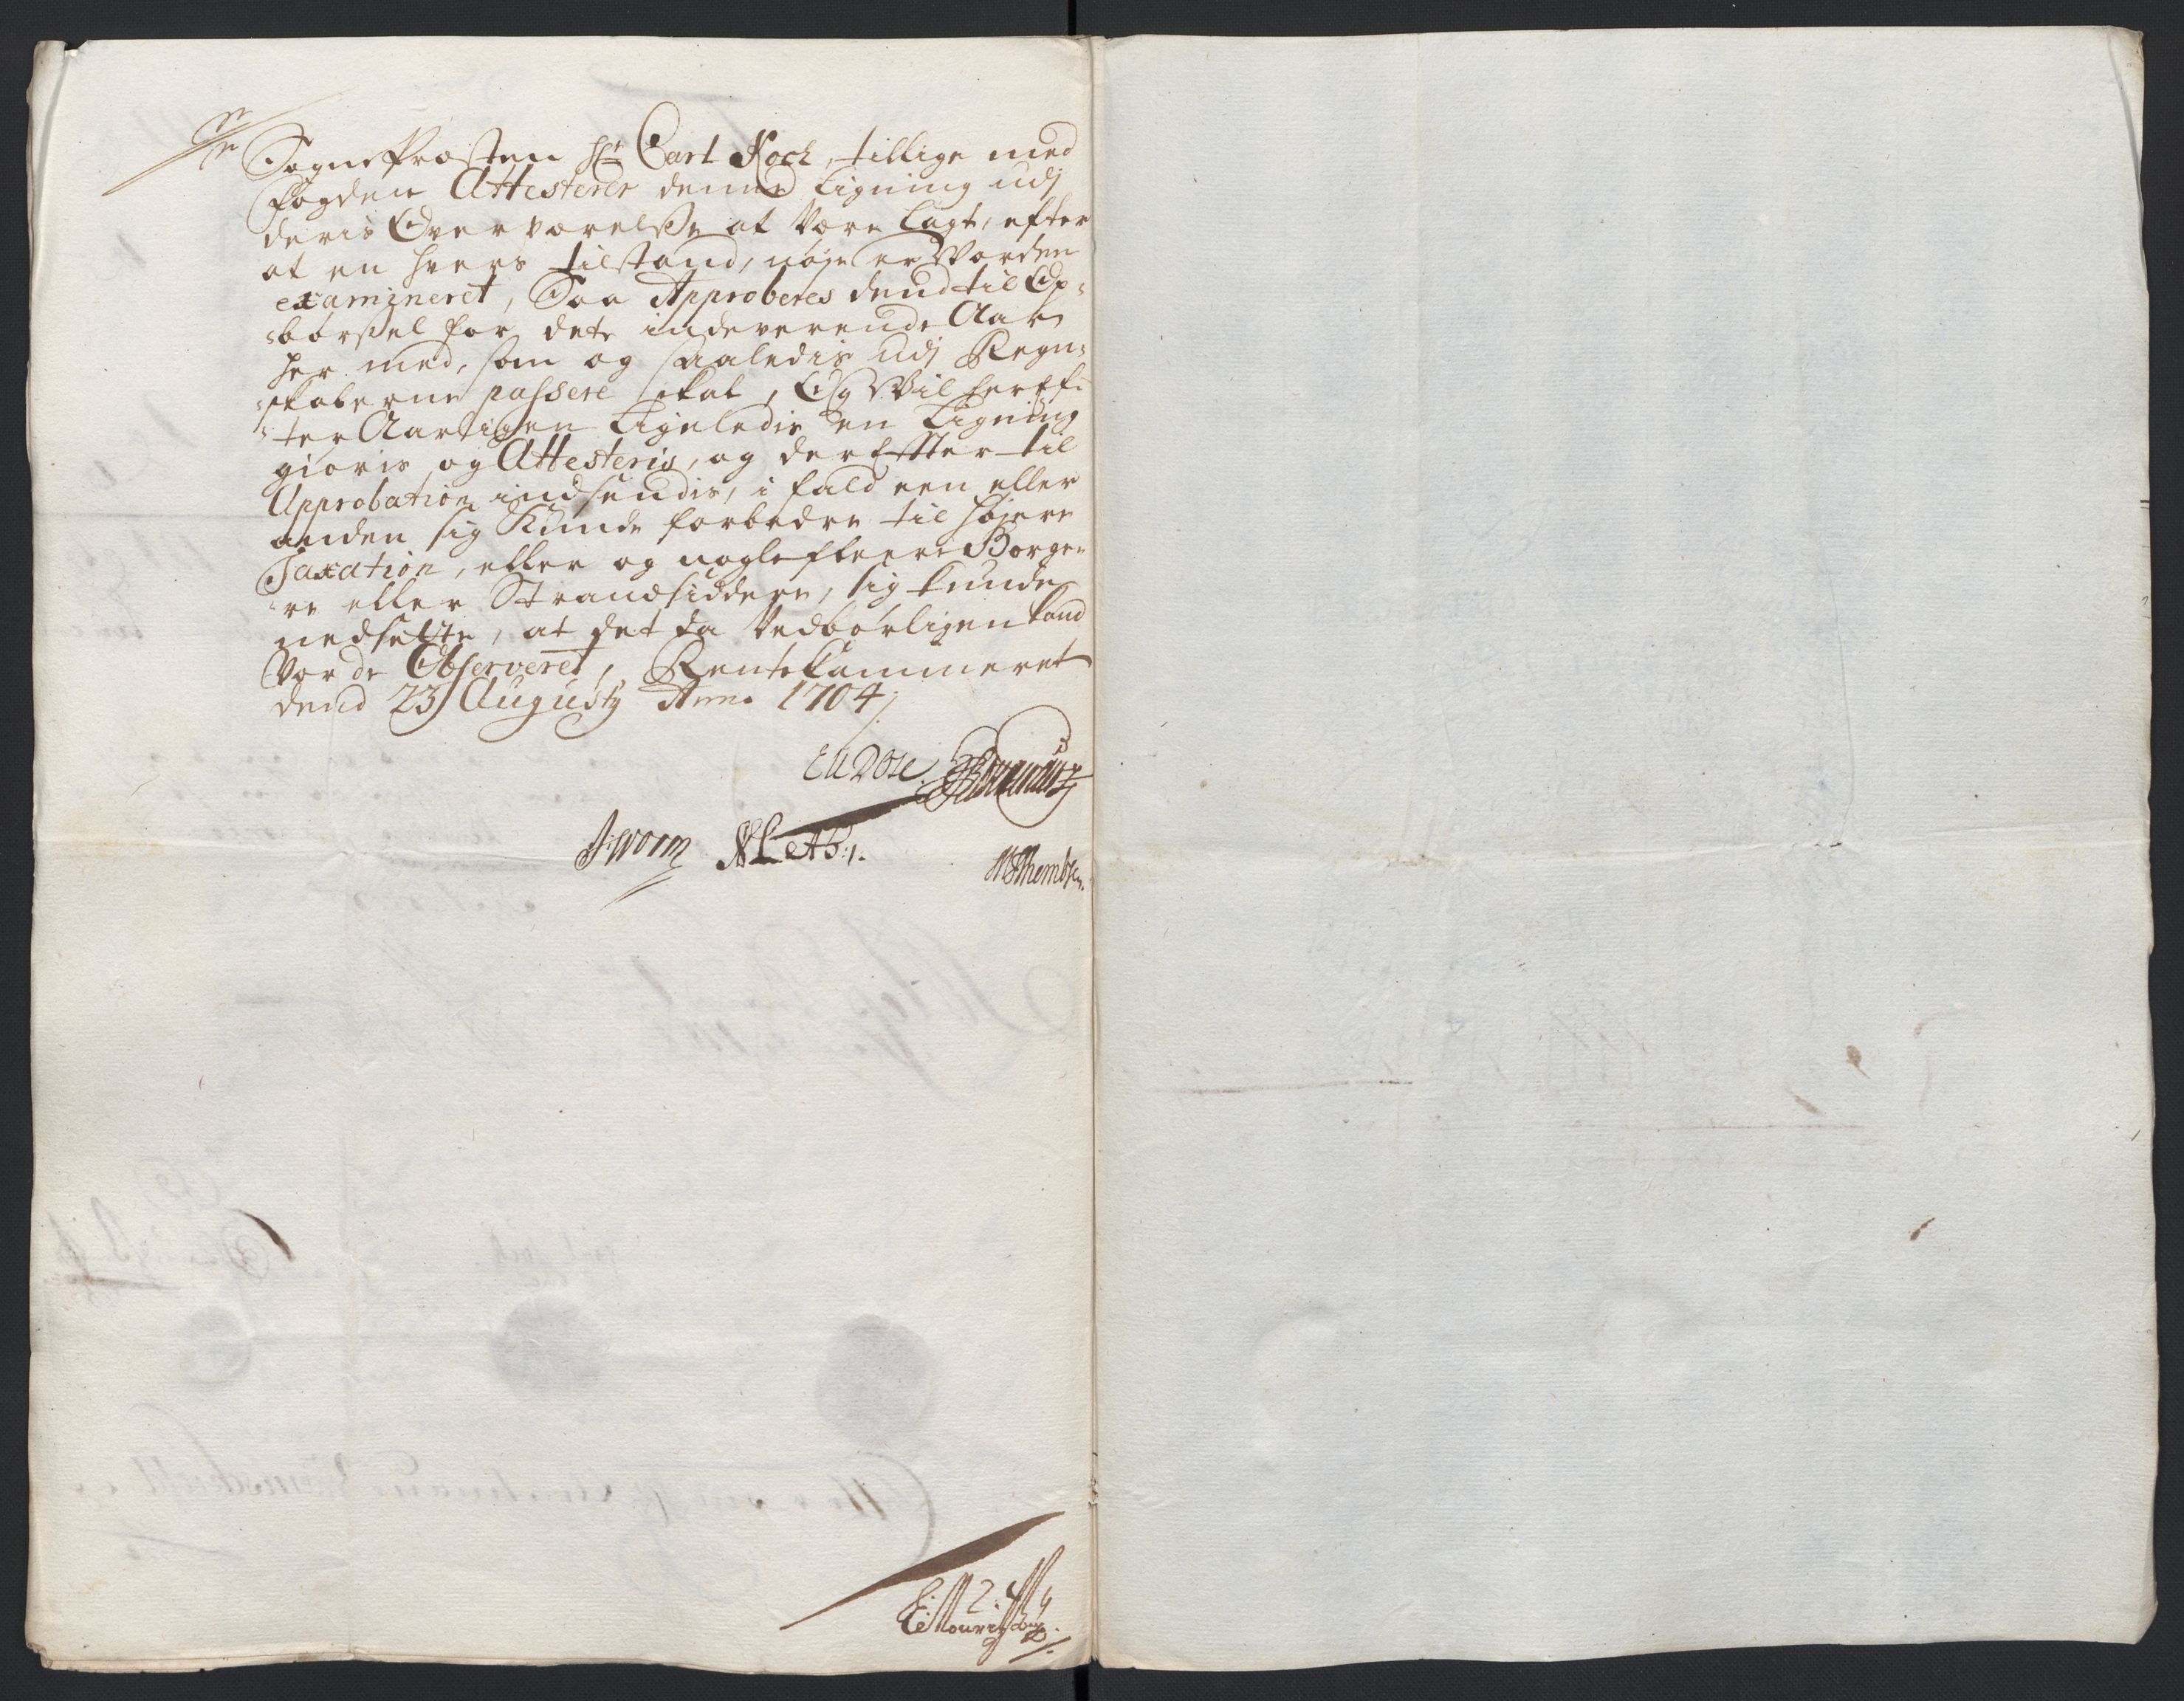 Sognepræsten Hr Carl Koch, tillige med
fogden Attesterer denne Ligning udj
deris Overværelsse at være lagt, efter
at en hvers tilstand, nøje er Vorden
examineret, Saa Approberes dend til Op=
=børssel for dete indeverende Aar
her med, som og saaledis udj Regn=
=skaberne passere skal, Og Vil heref=
=ter Aarligen Ligeledis en Ligning
giøris og Attesteris, og der Effter til
Approbation indsendis, i fald een eller
anden sig Kunde forbedre til højere
Taxation, eller og nogle fleere Borge=
=re eller Strandsiddere, sig kunde
nedsette, at det da Vedbørligen kand
Vorde Observeret, Rentekammeret
dend 23 Augustij Anno 1704
J: Worm